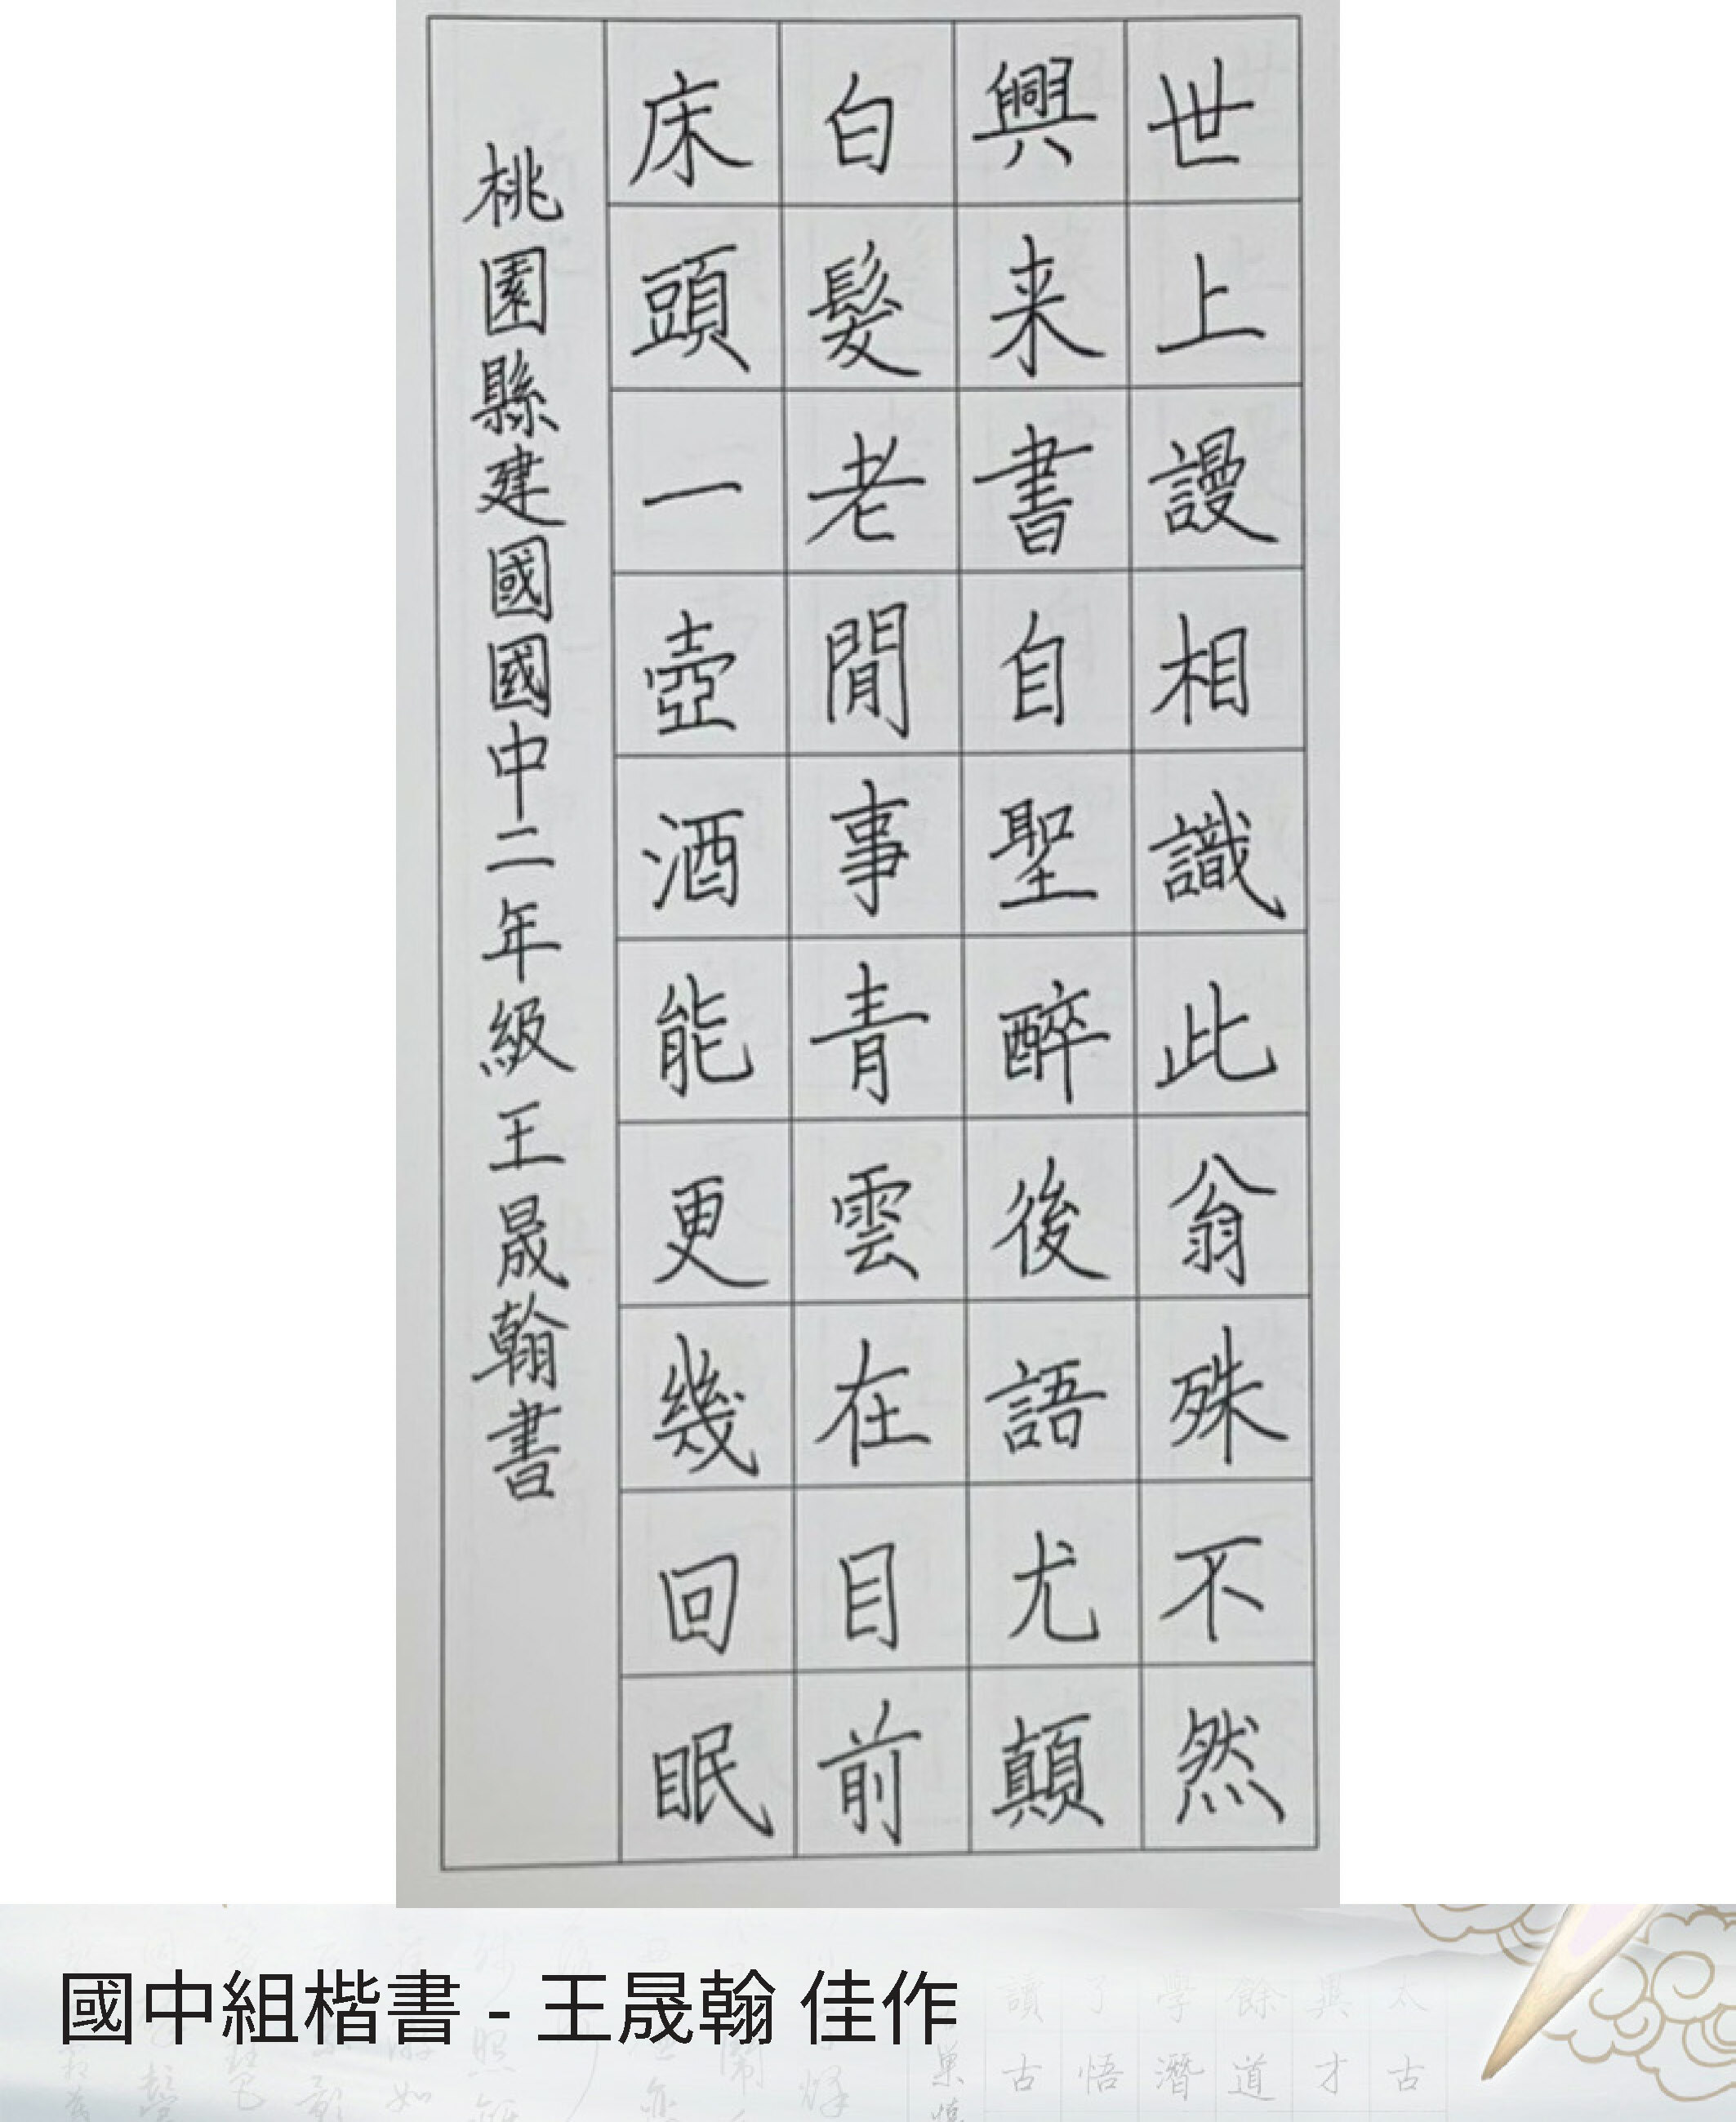 世上謾相識此翁殊不然
興来書自聖醉後語尤顛
白髮老閒事青雲在目前
床頭一壺酒能更幾回眠
桃園縣建國國中二年級王晟翰書
國中組楷書 - 王晟翰 佳作